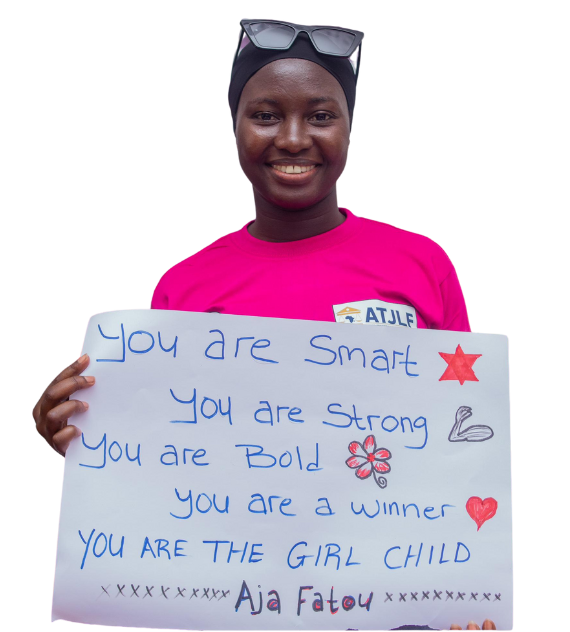 ATJLF
You are Smart
You are Strong
You are Bold
You are a winner
YOU ARE THE GIRL CHILD
xxxxxxxxxx Aja Fatou xxxxxxxxxx